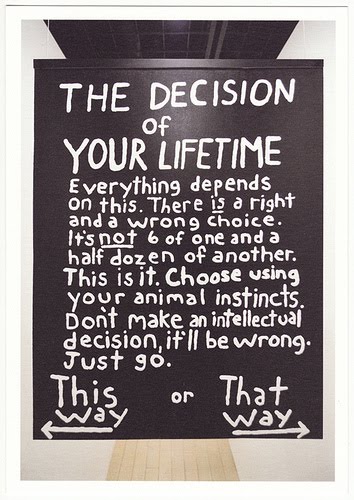 THE DECISION
of
YOUR LIFETIME
Everything depends
on this. There is a right
and a wrong choice.
It's not 6 of one and a
half dozen of another.
This is it. Choose using
your animal instincts.
Don't make an intellectual
decision, it'll be wrong.
Just go.
This or That
way way